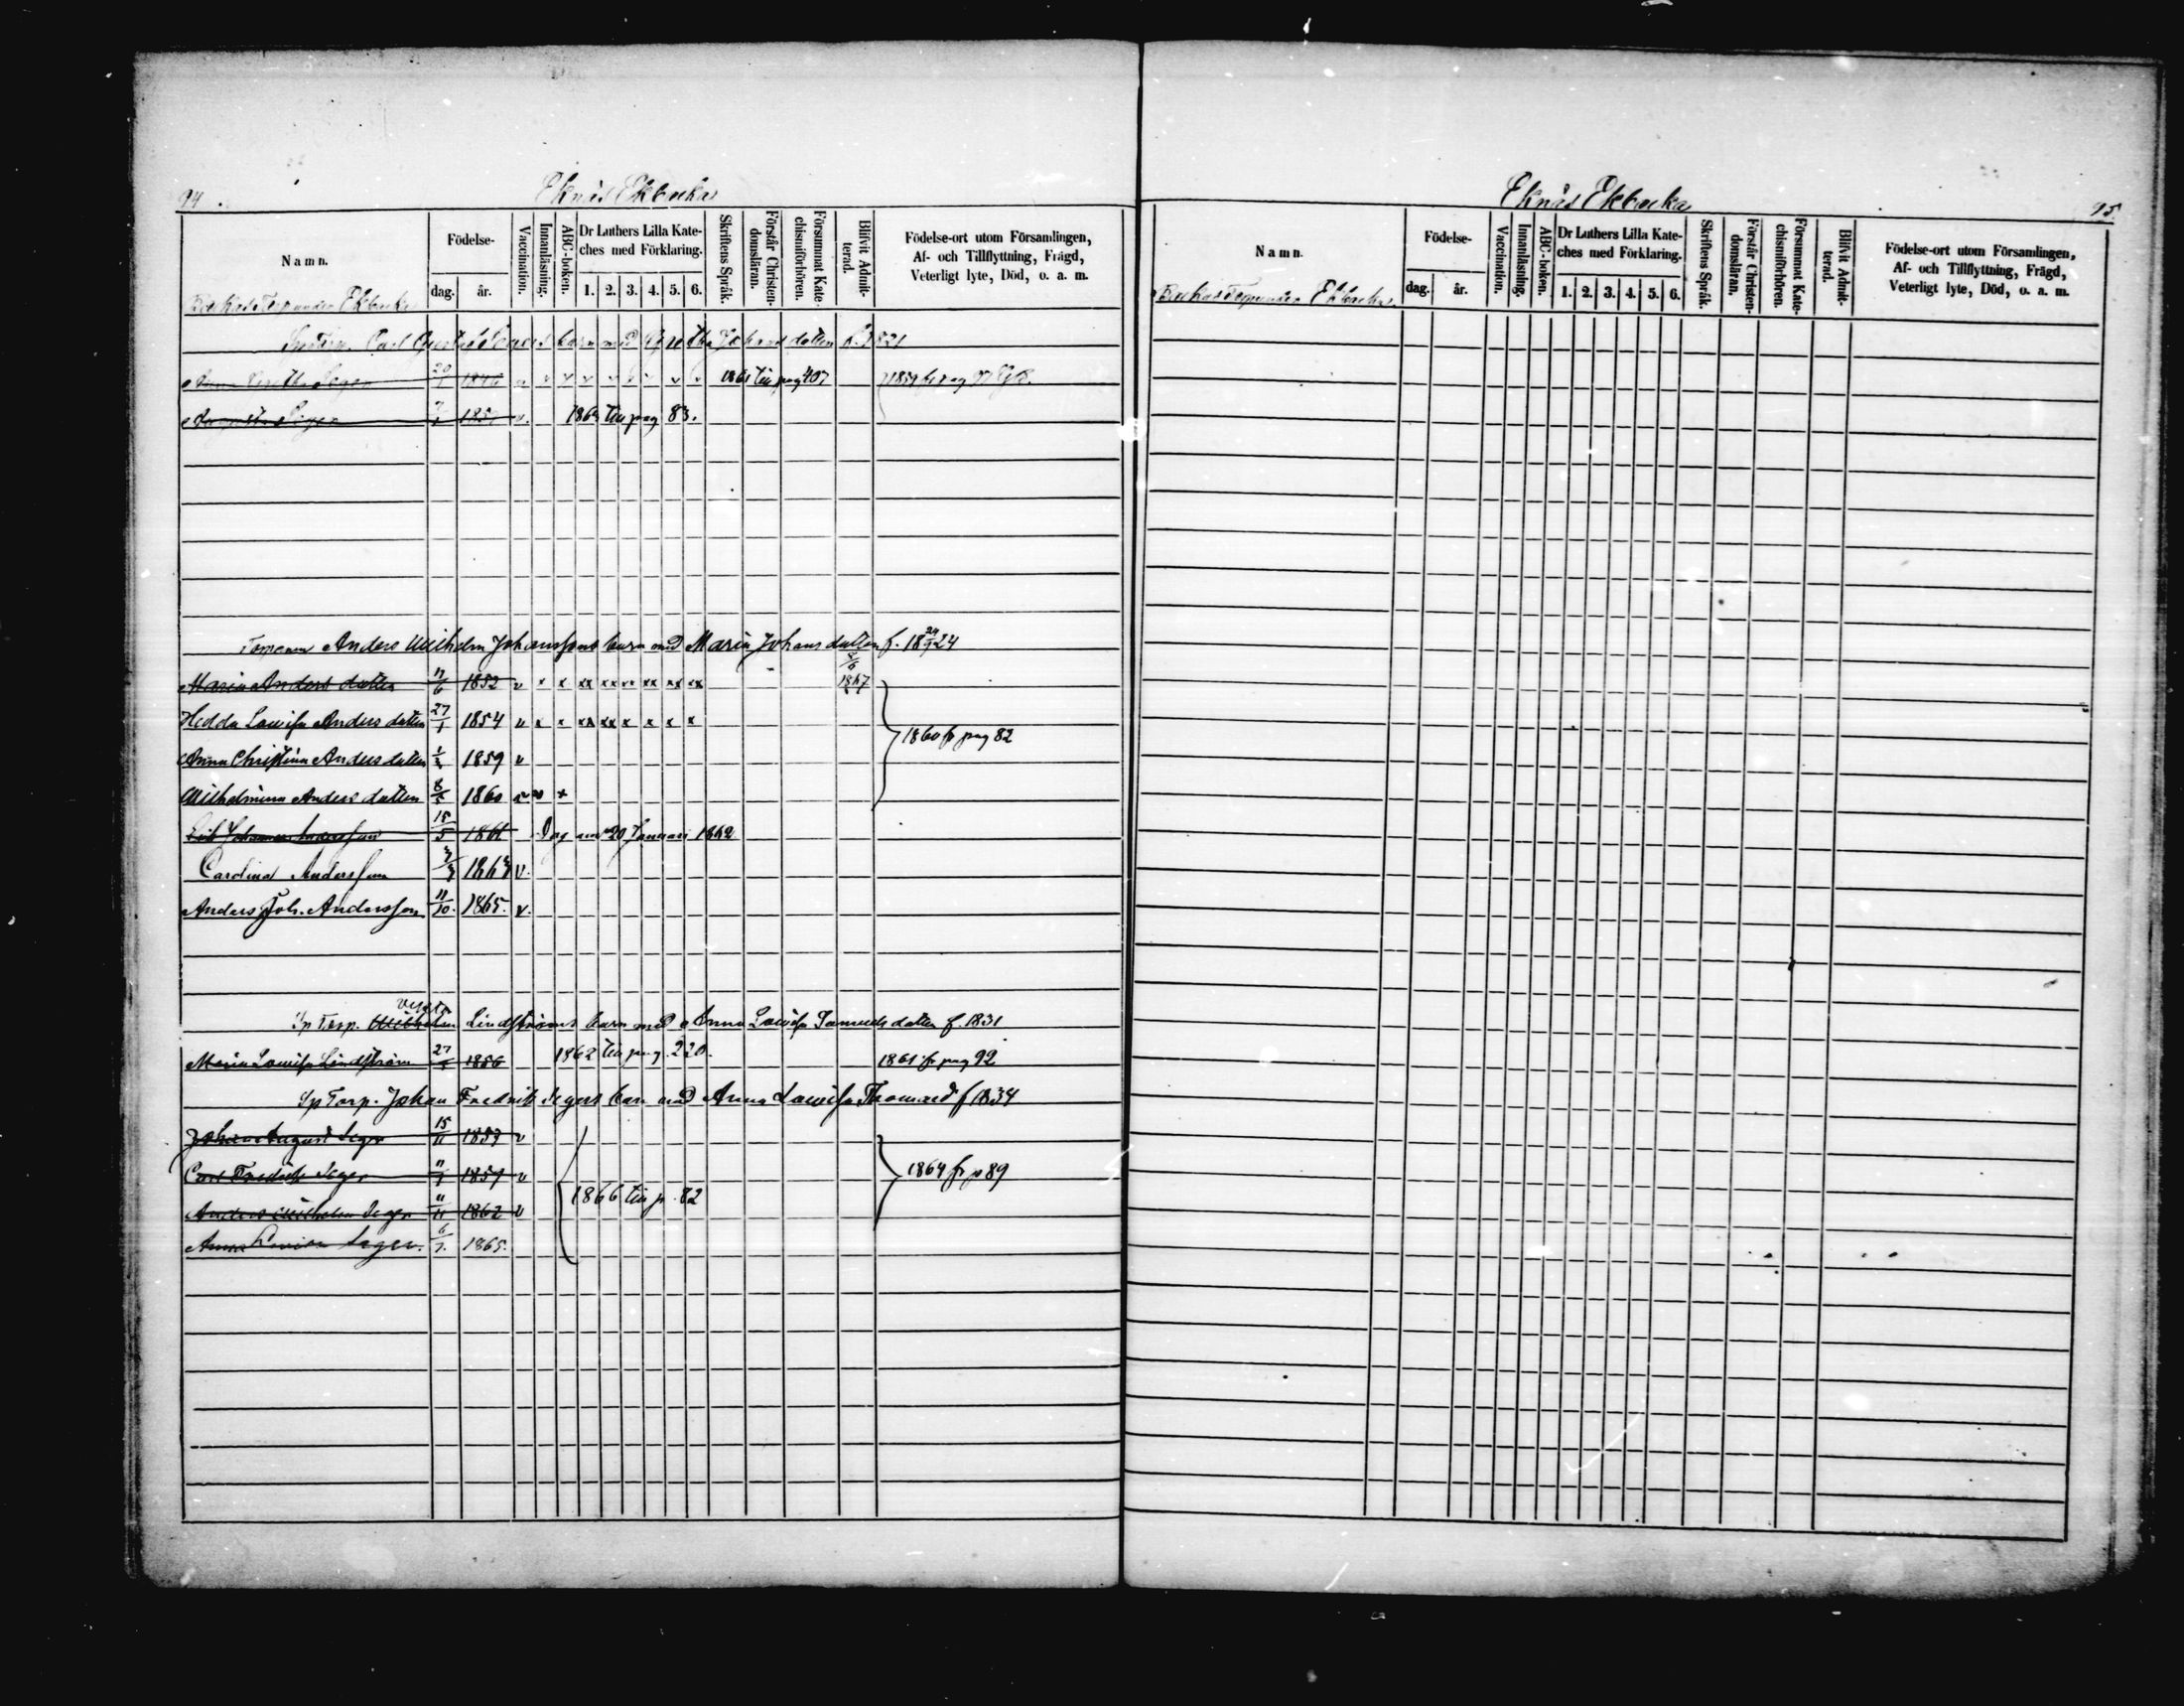 94.
Eknäs Ekbacka
Namn.
Födelse-
dag.
år.
Vaccination.
Innanläsning.
ABC-boken.
Dr Luthers Lilla Kate-
ches med Förklaring.
1. 2. 3. 4. 5. 6.
Skriftens Språk.
Förstår Christen-
domsläran.
Försummat Kate-
chismiförhören.
Blifvit Admit-
terad.
Födelse-ort utom Församlingen,
Af- och Tillflyttning, Frägd,
Veterligt lyte, Död, o. a. m.
Torp under Ekbacka
Sp Torp. Carl barn med Gretha Johans dotter f. 1821
Seger 20/1 1846 v v x x v v v v 1861 till pag 407 1859 fr pag
Seger v. 186 till pag 83.
Torparen Anders Wilhelm Johanssons barn med Maria Johans dotter f. 18 24
Maria Anders dotter 1852 v x x xx xx xx xx xx xx 1867
Hedda Lovisa Anders dotter 27/1 1854 v x x xx xx x x x x
1860 fr pag 82
Anna Christina Anders dotter 1859 v
Wilhelmina Anders dotter 8/5 1860 v v +
Johannes Andersson 15/5 1861 Dog 20 Januari 1862
Carolina Andersson v.
Anders Joh. Andersson 11/10. 1865. v.
Sp Torp. Wilhelm Lindströms barn med Anna Lovisa Samuels dotter f. 1831
Maria Lovisa Lindström 1856 1862 till pag. 220. 1861 fr pag 92
Sp Torp. Johan Fredrik Segers barn med Anna Lovisa Thomasd f 1834
Johan August Seger 15/11 v
Carl Fredrik Seger v 1864 fr p 89
Anders Wilhelm Seger 11/11 1862 v 1866 till p. 82
Anna Lovisa Seger. 6/7. 1865.
Eknäs Ekbacka
95
Namn.
Födelse-
dag.
år.
Vaccination.
Innanläsning.
ABC-boken.
Dr Luthers Lilla Kate-
ches med Förklaring.
1. 2. 3. 4. 5. 6.
Skriftens Språk.
Förstår Christen-
domsläran.
Försummat Kate-
chismiförhören.
Blifvit Admit-
terad.
Födelse-ort utom Församlingen,
Af- och Tillflyttning, Frägd,
Veterligt lyte, Död, o. a. m.
Backas Torp under Ekbacka